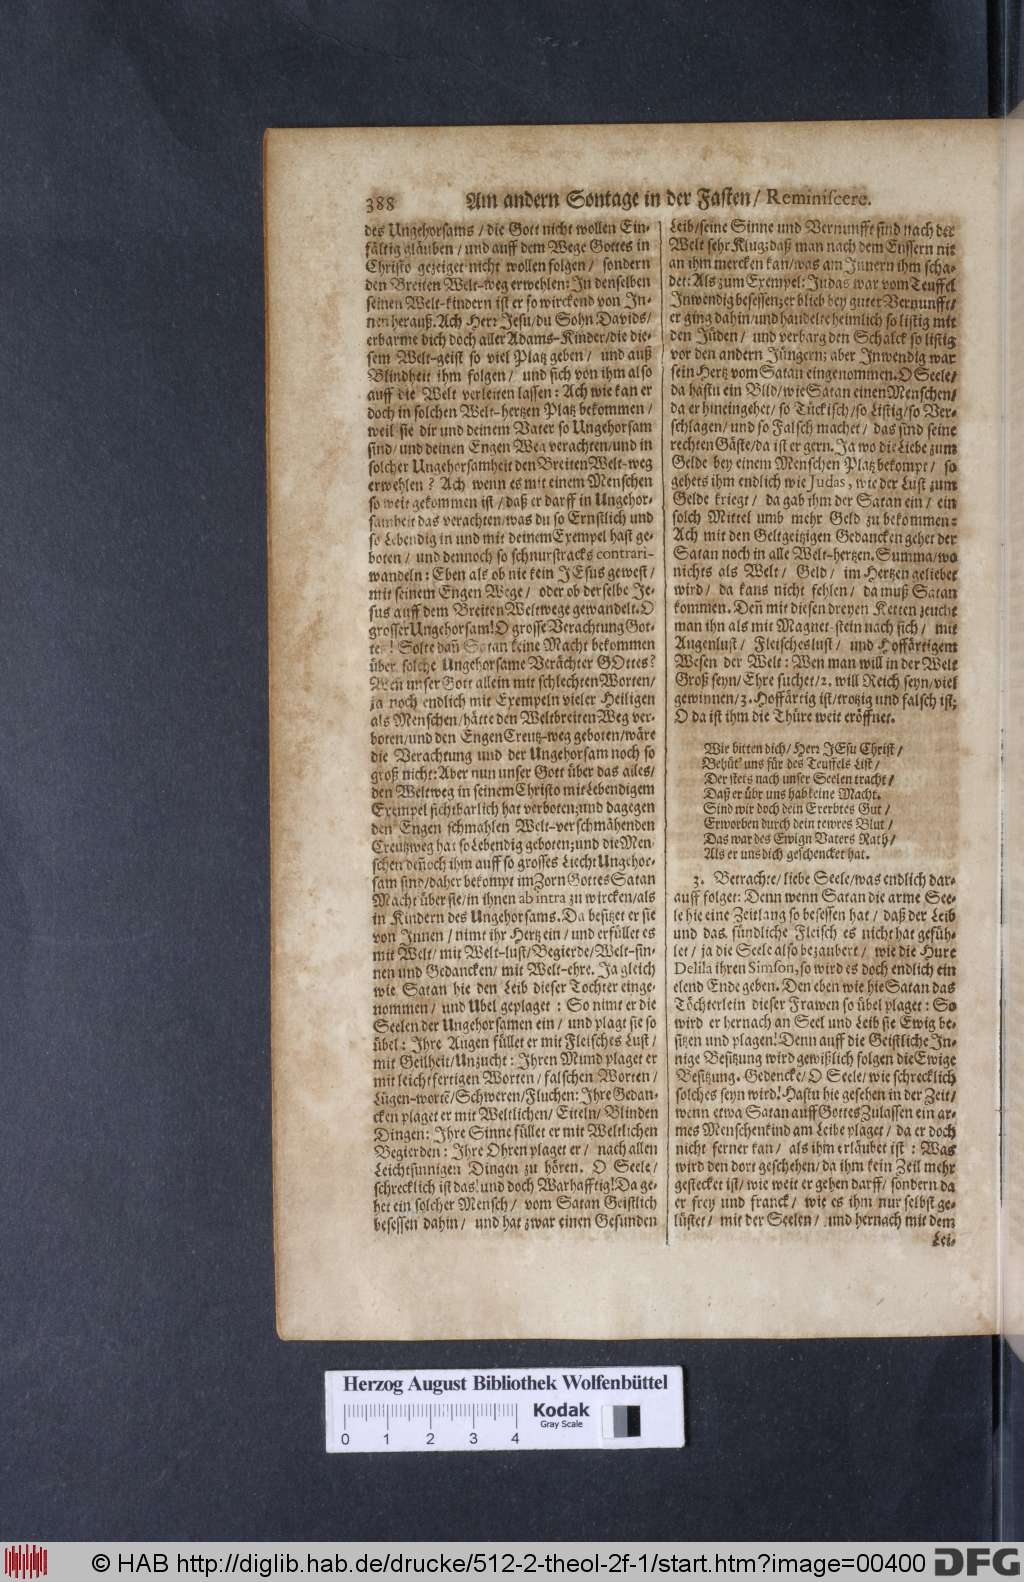 388 Am andern Sontage in der Fasten/ Reminiscere.
des Ungehorsams / die Gott nicht wollen Ein-
fältig gläuben / und auff dem Wege Gottes in
Christo gezeiget nicht wollen folgen / sondern
den Breiten Welt-weg erwehlen: In denselben
seinen Welt-kindern ist er so wirckend von In-
nen herauß. Ach Herr Jesu/du Sohn Davids/
erbarme dich doch aller Adams-Kinder/die die-
sem Welt-geist so viel Platz geben / und auß
Blindheit ihm folgen / und sich von ihm also
auff die Welt verleiten lassen: Ach wie kan er
doch in solchen Welt-hertzen Platz bekommen /
weil sie dir und deinem Vater so Ungehorsam
sind/ und deinen Engen Weg verachten/und in
solcher Ungehorsamheit den Breiten Welt-weg
erwehlen? Ach wenn es mit einem Menschen
so weit gekommen ist / daß er darff in Ungehor-
samheit das verachten/was du so Ernstlich und
so Lebendig in und mit deinem Exempel hast ge-
boten / und dennoch so schnurstracks contrari-
wandeln: Eben als ob nie kein JEsus gewest /
mit seinem Engen Wege / oder ob derselbe Je-
sus auff dem Breiten Weltwege gewandelt. O
grosser Ungehorsam! O grosse Verachtung Got-
tes! Solte dañ Satan keine Macht bekommen
über solche Ungehorsame Verächter GOttes?
Wen unser Gott allein mit schlechten Worten/
ja noch endlich mit Exempeln vieler Heiligen
als Menschen/hätte den Weltbreiten Weg ver-
boten/und den Engen Creutz-weg geboten/wäre
die Verachtung und der Ungehorsam noch so
groß nicht: Aber nun unser Gott über das alles/
den Weltweg in seinem Christo mit Lebendigem
Exempel sichtbarlich hat verboten; und dagegen
den Engen schmahlen Welt-verschmähenden
Creutzweg hat so Lebendig geboten; und die Men-
schen deñoch ihm auff so grosses Liecht Ungehor-
sam sind/ daher bekompt im Zorn Gottes Satan
Macht über sie/ in ihnen ab intra zu wircken/als
in Kindern des Ungehorsams. Da besitzet er sie
von Innen / nimt ihr Hertz ein / und erfüllet es
mit Welt/ mit Welt-lust/ Begierde/ Welt-sin-
nen und Gedancken/ mit Welt-ehre. Ja gleich
wie Satan hie den Leib dieser Tochter einge-
nommen / und Ubel geplaget : So nimt er die
Seelen der Ungehorsamen ein / und plagt sie so
übel: Ihre Augen füllet er mit Fleisches Lust /
mit Geilheit/ Unzucht: Ihren Mund plaget er
mit leichtfertigen Worten / falschen Worten /
Lügen-wortẽ/ Schweren/ Fluchen: Ihre Gedan-
cken plaget er mit Weltlichen/ Eiteln/ Blinden
Dingen: Ihre Sinne füllet er mit Weltlichen
Begierden: Ihre Ohren plaget er / nach allen
Leichtsinnigen Dingen zu hören. O Seele /
schrecklich ist das! und doch Warhafftig! Da ge-
het ein solcher Mensch / vom Satan Geistlich
besessen dahin / und hat zwar einen Gesunden
Leib/seine Sinne und Vernunfft sind nach der
Welt sehr Klug; daß man nach dem Eussern nit
an ihm mercken kan/was am Innern ihm scha-
det: Als zum Exempel: Judas war vom Teuffel
Inwendig besessen; er blieb bey guter Vernunfft/
er ging dahin/und handelte heimlich so listig mit
den Jüden / und verbarg den Schalck so listig
vor den andern Jüngern; aber Inwendig war
sein Hertz vom Satan eingenommen. O Seele/
da hastu ein Bild/wie Satan einen Menschen/
da er hineingehet/ so Tückisch/so Listig/so Ver-
schlagen/ und so Falsch machet / das sind seine
rechten Gäste/da ist er gern. Ja wo die Liebe zum
Gelde bey einem Menschen Platz bekompt / so
gehets ihm endlich wie Judas, wie der Lust zum
Gelde kriegt / da gab ihm der Satan ein / ein
solch Mittel umb mehr Geld zu bekommen:
Ach mit den Geltgeitzigen Gedancken gehet der
Satan noch in alle Welt-hertzen. Summa/wo
nichts als Welt / Geld / im Hertzen geliebet
wird / da kans nicht fehlen / da muß Satan
kommen. Deñ mit diesen dreyen Ketten zeucht
man ihn als mit Magnet-stein nach sich / mit
Augenlust / Fleischeslust / und Hoffärtigem
Wesen der Welt: Wen man will in der Welt
Groß seyn/ Ehre suchet/2. will Reich seyn/viel
gewinnen/3. Hoffärtig ist/trotzig und falsch ist;
O da ist ihm die Thüre weit eröffnet.
Wir bitten dich/ Herr JEsu Christ /
Behüt uns für des Teuffels List /
Der stets nach unser Seelen tracht /
Daß er übr uns hab keine Macht.
Sind wir doch dein Ererbtes Gut /
Erworben durch dein tewres Blut /
Das war des Ewign Vaters Rath/
Als er uns dich geschencket hat.
3. Betrachte/ liebe Seele/was endlich dar-
auff folget: Denn wenn Satan die arme See-
le hie eine Zeitlang so besessen hat / daß der Leib
und das sündliche Fleisch es nicht hat gefüh-
let / ja die Seele also bezaubert / wie die Hure
Delila ihren Simson, so wird es doch endlich ein
elend Ende geben. Den eben wie hie Satan das
Töchterlein dieser Frawen so übel plaget: So
wird er hernach an Seel und Leib sie Ewig be-
sitzen und plagen! Denn auff die Geistliche In-
nige Besitzung wird gewißlich folgen die Ewige
Besitzung. Gedencke/ O Seele/ wie schrecklich
solches seyn wird! Hastu hie gesehen in der Zeit/
wenn etwa Satan auff Gottes Zulassen ein ar-
mes Menschenkind am Leibe plaget / da er doch
nicht ferner kan / als ihm erläubet ist : Was
wird den dort geschehen/ da ihm kein Zeil mehr
gestecket ist/ wie weit er gehen darff/ sondern da
er frey und franck / wie es ihm nur selbst ge-
lüstet / mit der Seelen / und hernach mit dem
Lei-
Herzog August Bibliothek Wolfenbüttel
Kodak
Gray Scale
0 1 2 3 4
© HAB http://diglib.hab.de/drucke/512-2-theol-2f-1/start.htm?image=00400 DFG